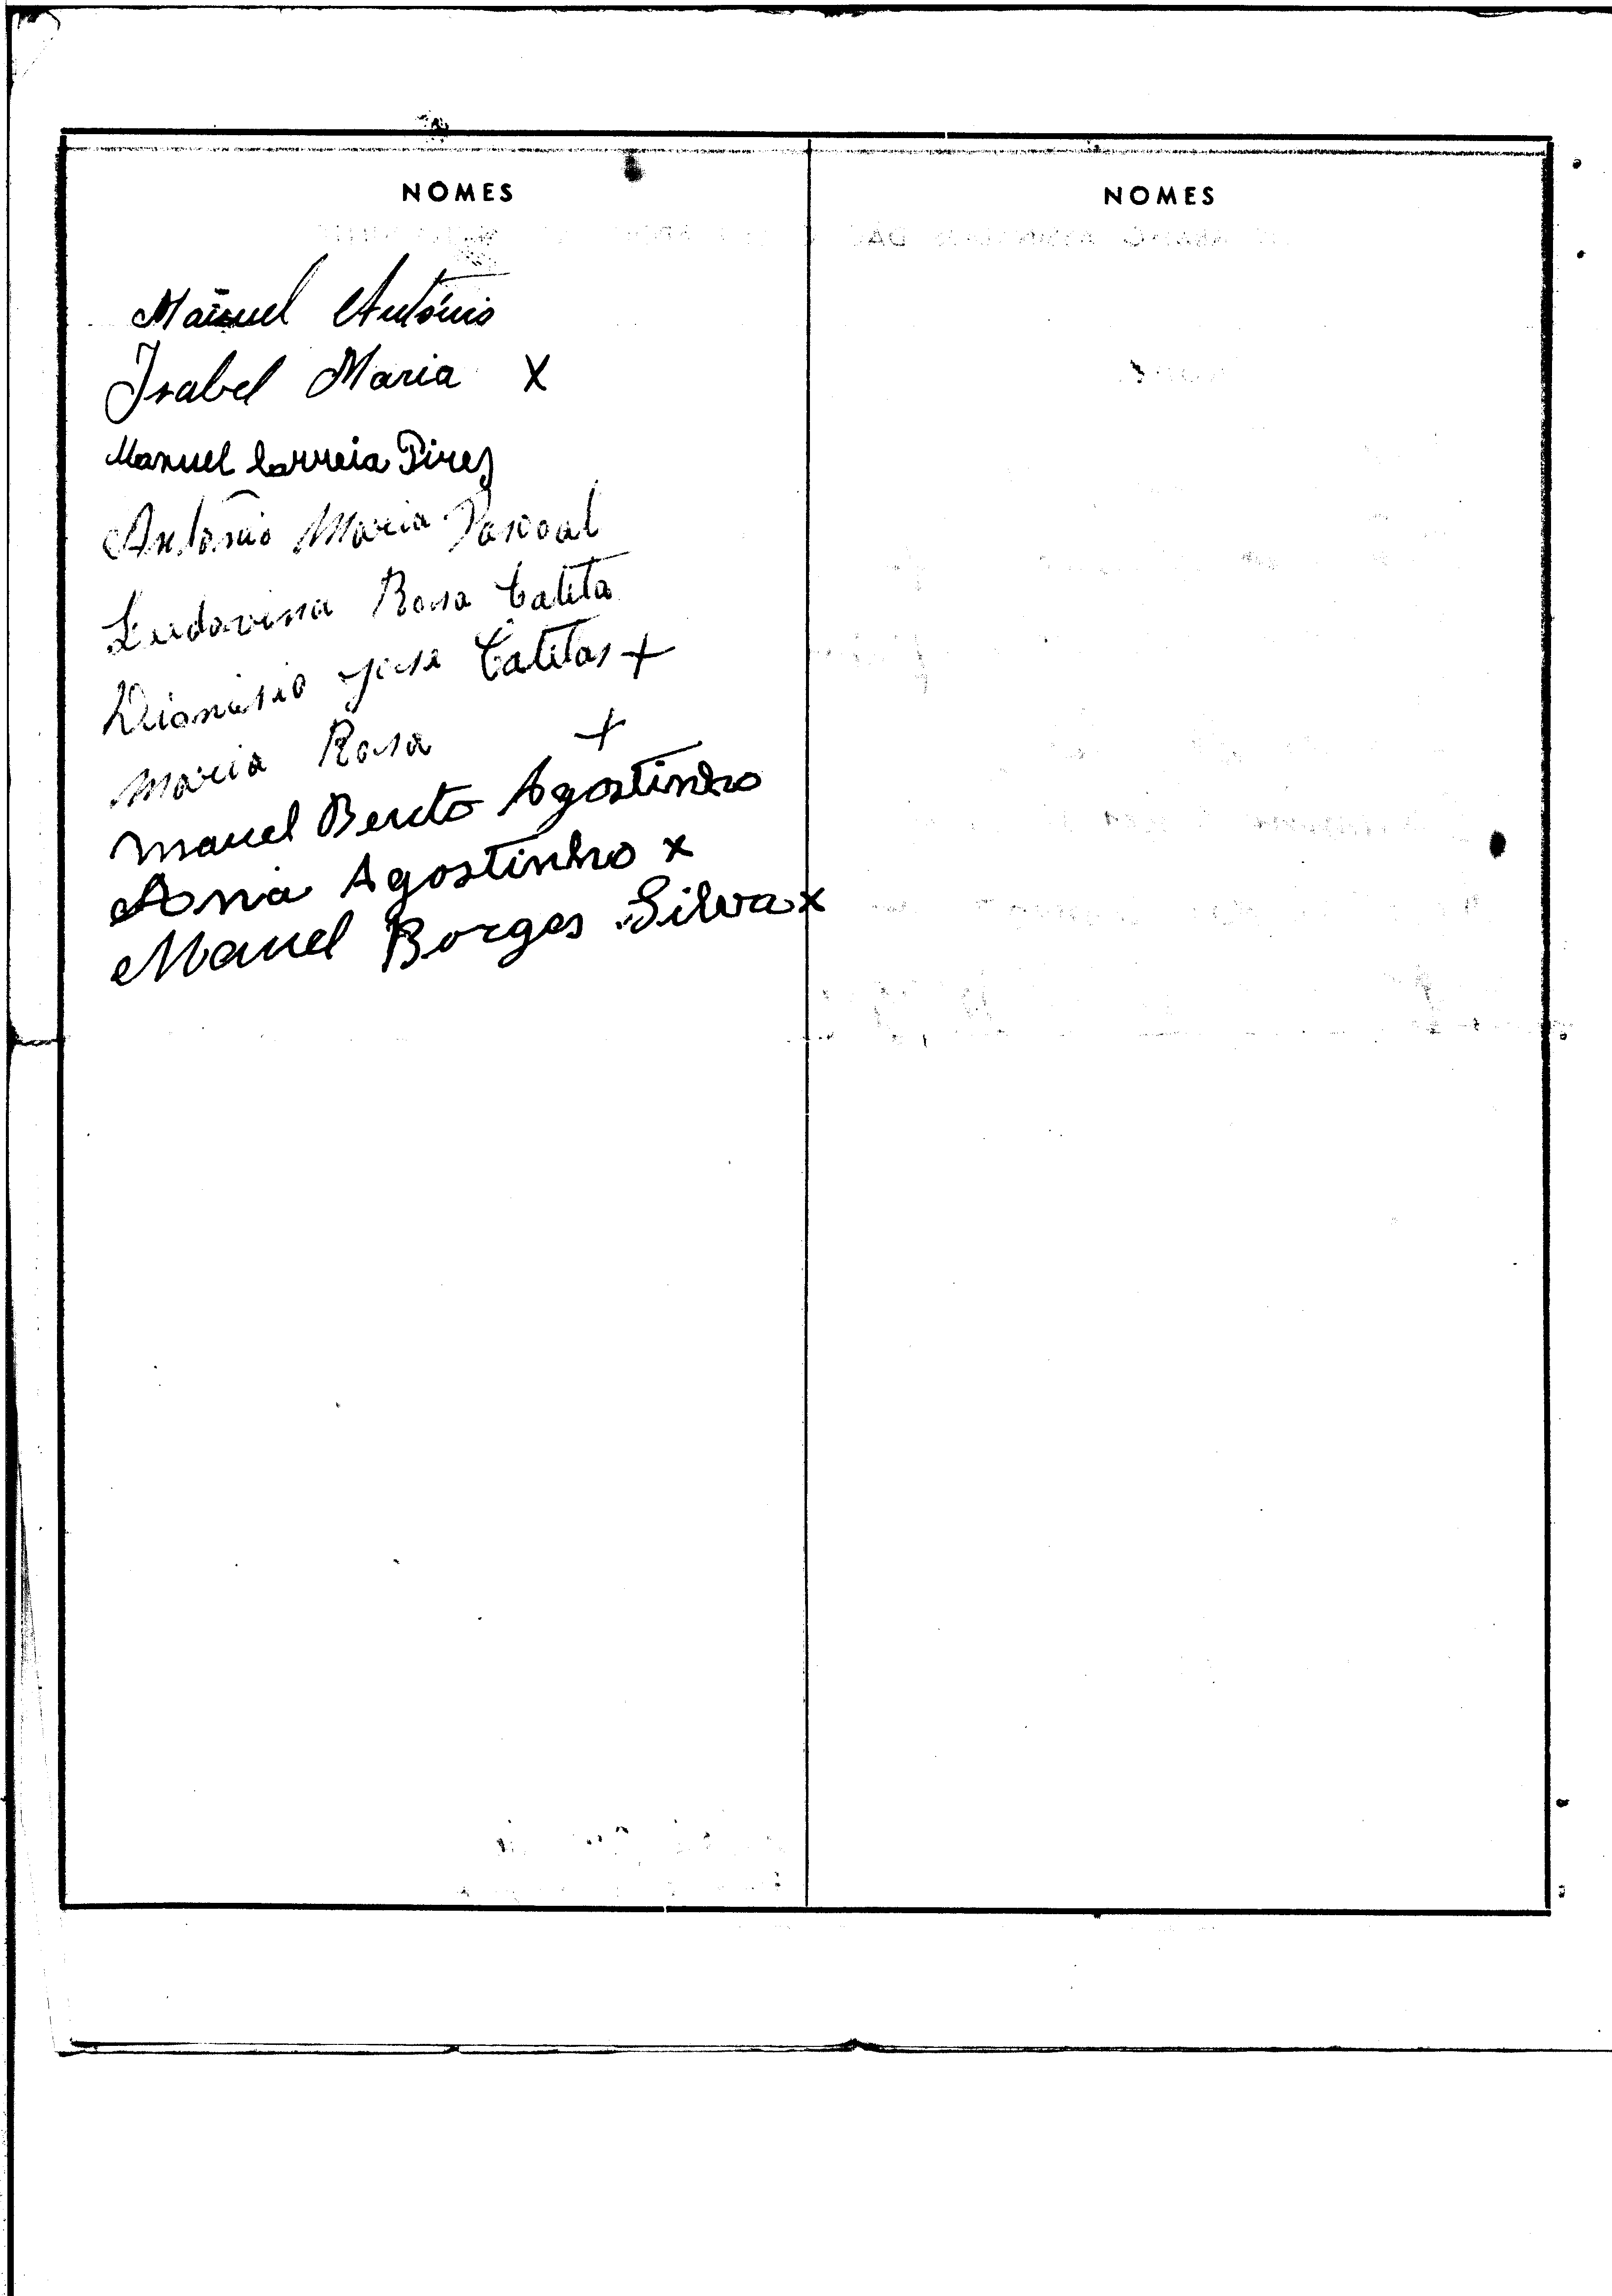 NOMES
NOMES
Manuel António
Isabel Maria X
Manuel Correia Pires
António Maria Pascoal
Ludovina Rosa Catita
Dionisio José Catitas +
Maria Rosa +
Manuel Bento Agostinho
Ana Agostinho x
Manuel Borges Silva x